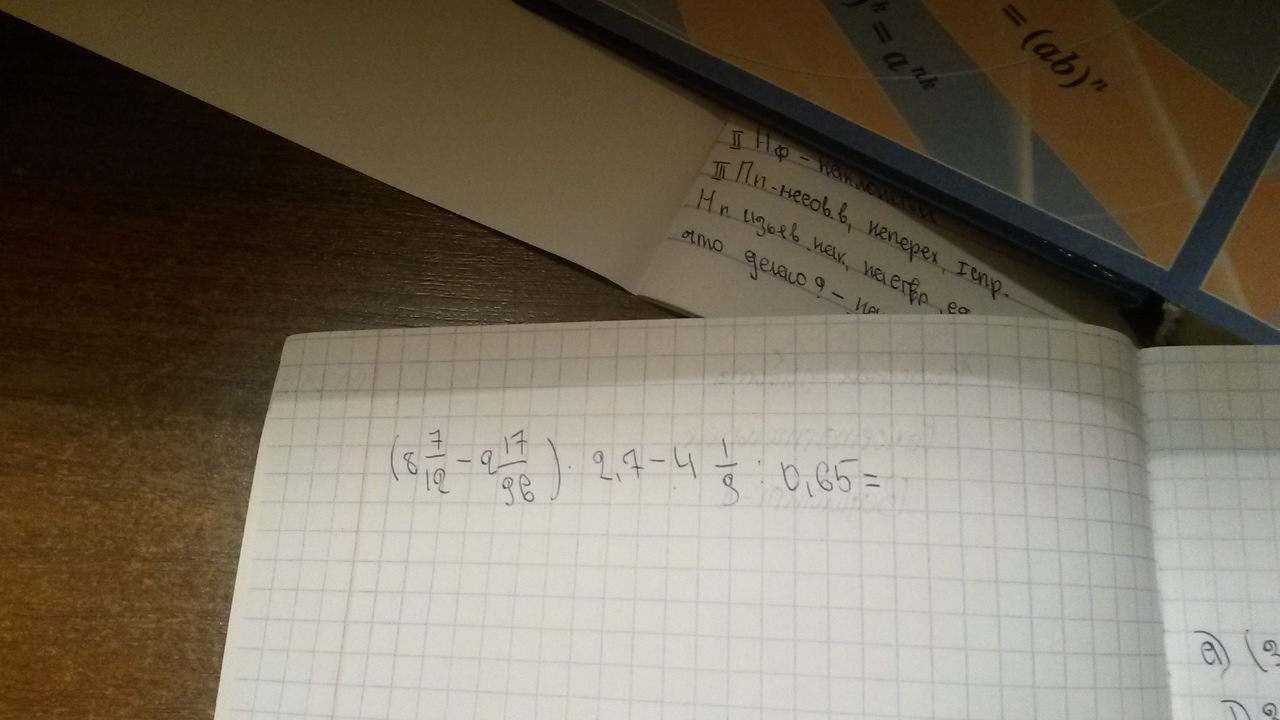 )ᵏ = aⁿᵏ
= (ab)ⁿ
II Нф -
III Пп - несов.в, неперех, I спр.
Нп изъяв нак,
что делаю? -
(8 7/12 - 2 17/36) · 2,7 - 4 1/3 : 0,65 =
а) (2
1) 2